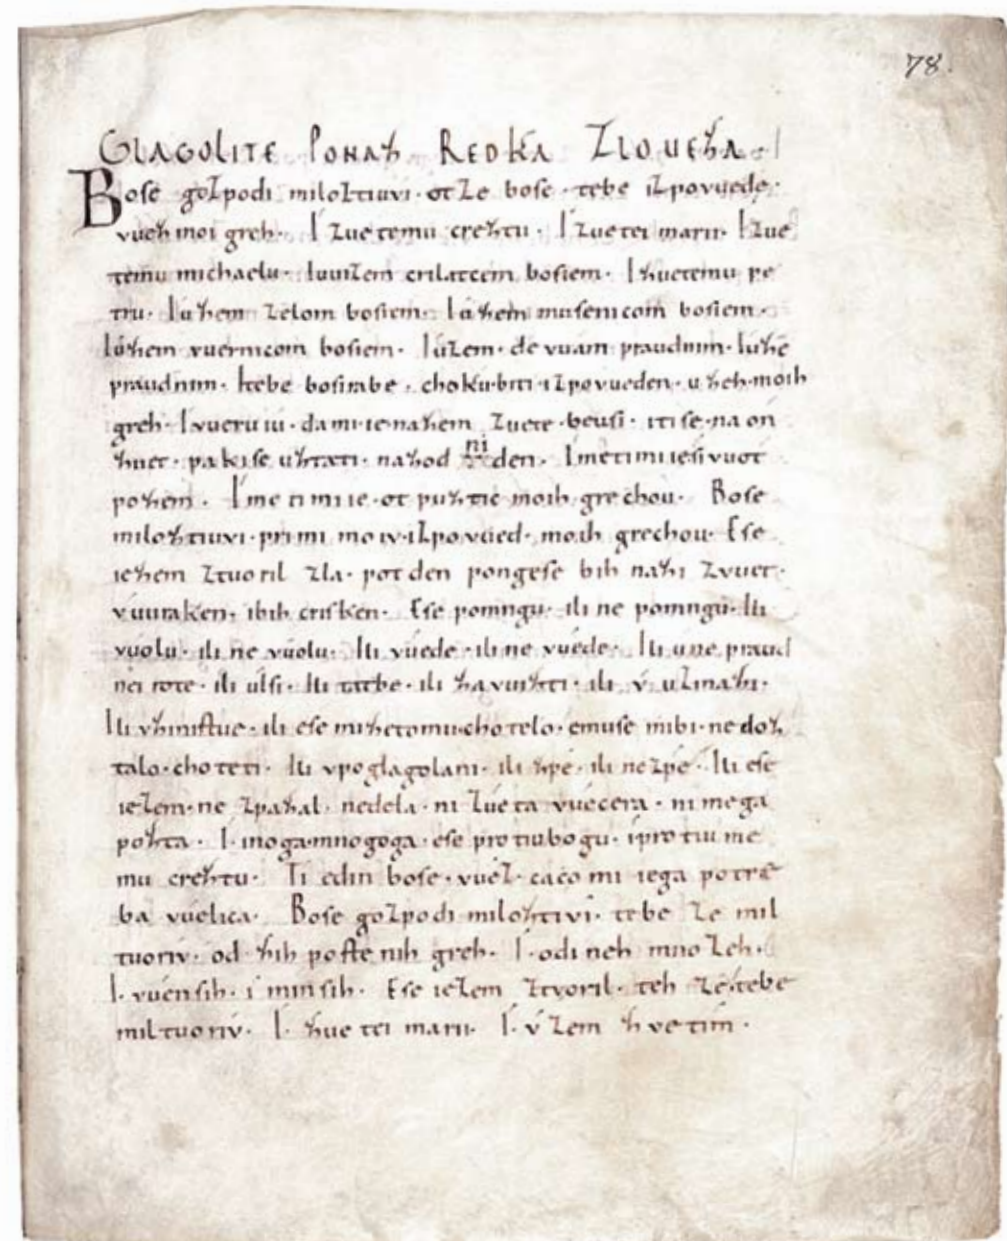 GLAGOLITE PONAZ REDKA ZLOUEZA.
Bose gozpodi miloztiuvi. otze bose. tebe izpovuede.
vuez moi greh. I zuetemu creztu. I zuetei marii. Izue
temu michaelu. Iuuizem crilatcem bosiem. I zuetemu pe
tru. Iuzem zelom bosiem. Iuzem musenicom bosiem.
Iuzem vuernicom bosiem. Iuzem. devuam praudnim. Iuze
praudnim. Itebe bosirabe. choku.biti.izpovueden. uzeh.moih
greh. Ivueruiu. da mi.ie.nazem zuete. beusi. iti se.na on
zuet. pakise uztati. nazod ni den. Imeti mi ie sivuot
pozem. Imeti mi ie. ot puztic moih grechou. Bose
miloztiuvi. primi moiv.izpovued. moih grechou. Ese
iezem ztuoril zla. pot den pongese bih nazi zvuet.
vuuraken. ibih crisken. Ese pomngu. ili ne pomngu. Ili
vuolu. ili ne vuolu. Ili vuede. ili ne vuede. Ili u ne praud
nei rote. ili ulsi. Ili tatbe. ili zavuizti. ili v uzmazi.
Ili vzinistue. ili ese mizetomu.chotelo. emuse mibi. ne doz
talo. choteti. Ili vpoglagolani. ili zpe. ili nezpe. Ili ese
iezem. ne zpazal. nedela. ni zueta vuecera. ni mega
pozta. I. inoga.mnogoga. ese protiubogu. iprotiu me
mu creztu. Ti edin bose. vuez. caco mi iega potre
ba vuelica. Bose gozpodi miloztivi. tebe ze mil
tuoriv. od zih postenih greh. I. odineh mnozeh.
I. vuensih. i minsih. Ese iezem ztvoril. teh ze tebe
miltuoriv. I. zuetei marii. I. vzem zvetim.